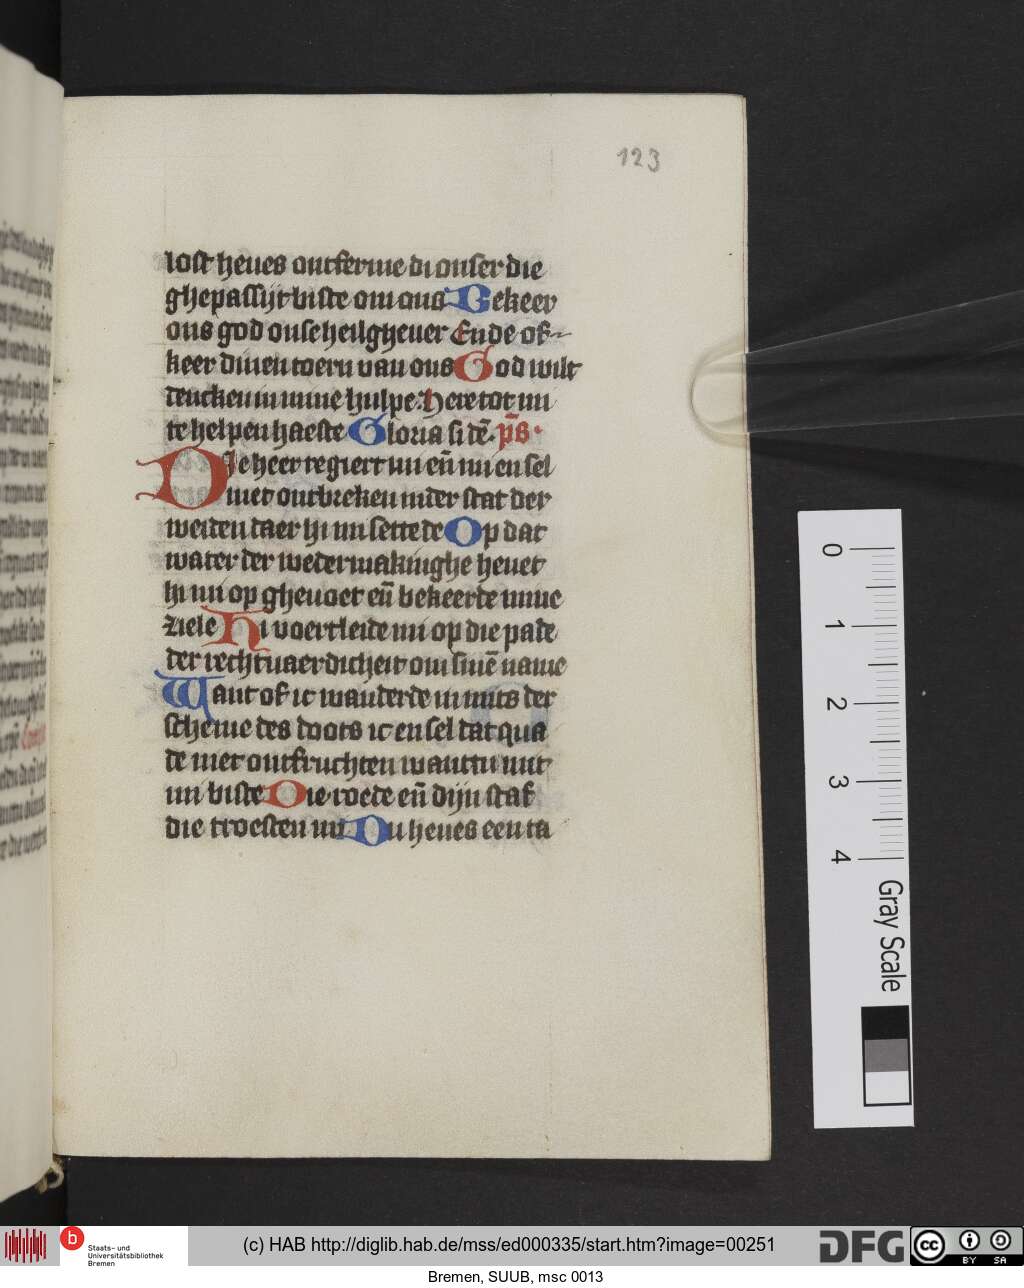 123
lost heues ontferme di onser die
ghepassijt biste om ons Bekeer
ons god onse heilghever Ende of-
keer dinen toern van ons God wilt
dencken in mine hulpe. Here tot mi
te helpen haeste Gloria si dē. ps̄.
Die heer regiert mi eñ mi en sel
niet ontbreken in der stat der
weiden daer hi mi settede Op dat
water der wedermakinghe hevet
hi mi op ghevoet eñ bekeerde mine
ziele Hi voertleide mi op die pade
der rechtvaerdicheit om sinē name
Want of ic wanderde in mits der
scheme des doots ic en sel dat qua
de niet ontfruchten want tu mit
mi biste Die roede eñ dijn staf
die troesten mi Du heues een ta
0
1
2
3
4
Gray Scale
b Staats- und
Universitätsbibliothek
Bremen
(c) HAB http://diglib.hab.de/mss/ed000335/start.htm?image=00251
DFG
cc BY SA
Bremen, SUUB, msc 0013